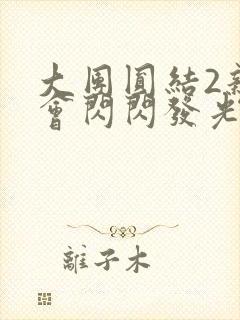 大團圓結2
會閃閃發光
離子木